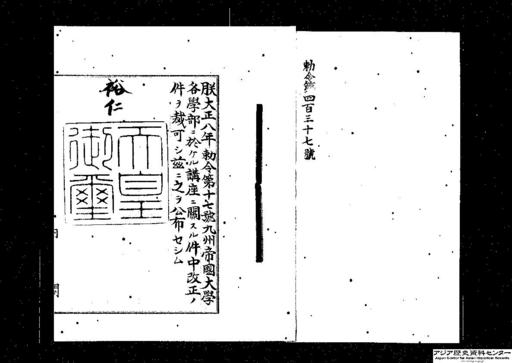 勅令第四百三十七號
朕大正八年勅令第十七號九州帝國大學
各學部ニ於ケル講座ニ關スル件中改正ノ
件ヲ裁可シ茲ニ之ヲ公布セシム
裕仁
天皇
御璽
アジア歴史資料センター
Japan Center for Asian Historical Records